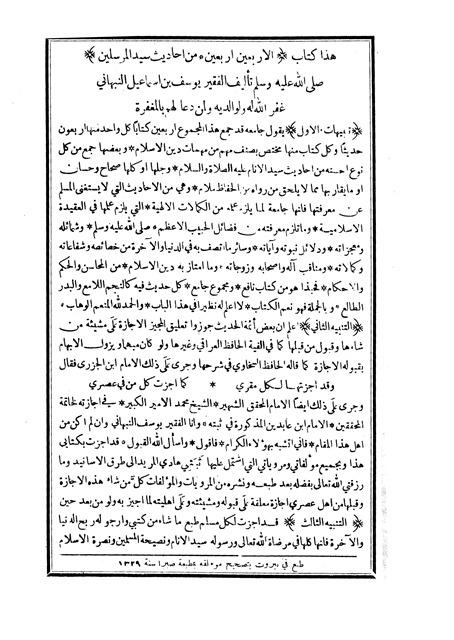 هذا كتاب ﴿ الاربعين اربعين ٭ من احاديث سيد المرسلين ﴾
صلى الله عليه وسلم تأليف الفقير يوسف بن اسماعيل النبهاني
غفر الله له ولوالديه ولمن دعا لهم بالمغفرة
﴿ تنبيهات الاول ﴾ يقول جامعه قد جمع هذا المجموع اربعين كتابًا كل واحد منها اربعون
حديثًا وكل كتاب منها مختص بصنف مهم من مهمات دين الاسلام ٭ وبعضها جمع من كل
نوع احسنه من احاديث سيد الانام عليه الصلاة والسلام ٭ وجلها او كلها صحاح وحسان
او ما يقاربها مما لا يلحق من رواه من الحفاظ ملام ٭ وهي من الاحاديث التي لا يستغنى المسلم
عن معرفتها فانها جامعة لما يلزم علمه من الكمالات الالهية ٭ التي يلزم علمها في العقيدة
الاسلامية ٭ وما تلزم معرفته من فضائل الحبيب الاعظم ٭ صلى الله عليه وسلم ٭ وشمائله
ومعجزاته ٭ ودلائل نبوته وآياته ٭ وسائر ما اتصف به في الدنيا والآخرة من خصائصه وشفاعاته
وكمالاته ٭ ومناقب آله واصحابه وزوجاته ٭ وما امتاز به دين الاسلام ٭ من المحاسن والحكم
والاحكام ٭ فحبذا هو من كتاب نافع ٭ ومجموع جامع ٭ كل حديث فيه كالنجم اللامع والبدر
الطالع ٭ وبالجملة فهو نعم الكتاب ٭ لا اعلم له نظير في هذا الباب ٭ والحمد لله المنعم الوهاب ٭
﴿ التنبيه الثاني ﴾ اعلم ان بعض أئمة الحديث جوزوا تعليق المجيز الاجازة على مشيئة من
شاءها وقبول من قبلها كما في الفية الحافظ العراقي وغيرها ولو كان مبهما ويزول الابهام
بقبوله الاجازة كما قاله الحافظ السخاوي في شرحها وجرى على ذلك الامام ابن الجزري فقال
وقد اجزتها لكل مقري ٭ كما اجزت كل من في عصري
وجرى على ذلك ايضًا الامام المحقق الشهير ٭ الشيخ محمد الامير الكبير ٭ في اجازته لخاتمة
المحققين ٭ الامام ابن عابدين المذكورة في ثبته ٭ وانا الفقير يوسف النبهاني وان لم اكن من
اهل هذا المقام ٭ فاني اتشبه بهؤلاء الكرام ٭ فاقول ٭ واسأل الله القبول ٭ قد اجزت بكتابي
هذا وبجميع مولفاتي ومروياتي التي اشتمل عليها ثبتي هادي المريد الى طرق الاسانيد وما
رزقني الله تعالى بفضله بعد طبعه ونشره من المرويات والمؤلفات كل من شاء هذه الاجازة
وقبلها من اهل عصري اجازة معلقة على قبوله ومشيئته وعلى اهليته لما اجيز به ولو من بعد حين
﴿ التنبيه الثالث ﴾ قد اجزت لكل مسلم طبع ما شاء من كتبي وارجو له ربح الدنيا
والآخرة فانها كلها في مرضاة الله تعالى ورسوله سيد الانام ونصيحة المسلمين ونصرة الاسلام
طبع في بيروت بتصحيح مولفه بمطبعة صبرا سنة ١٣٢٩